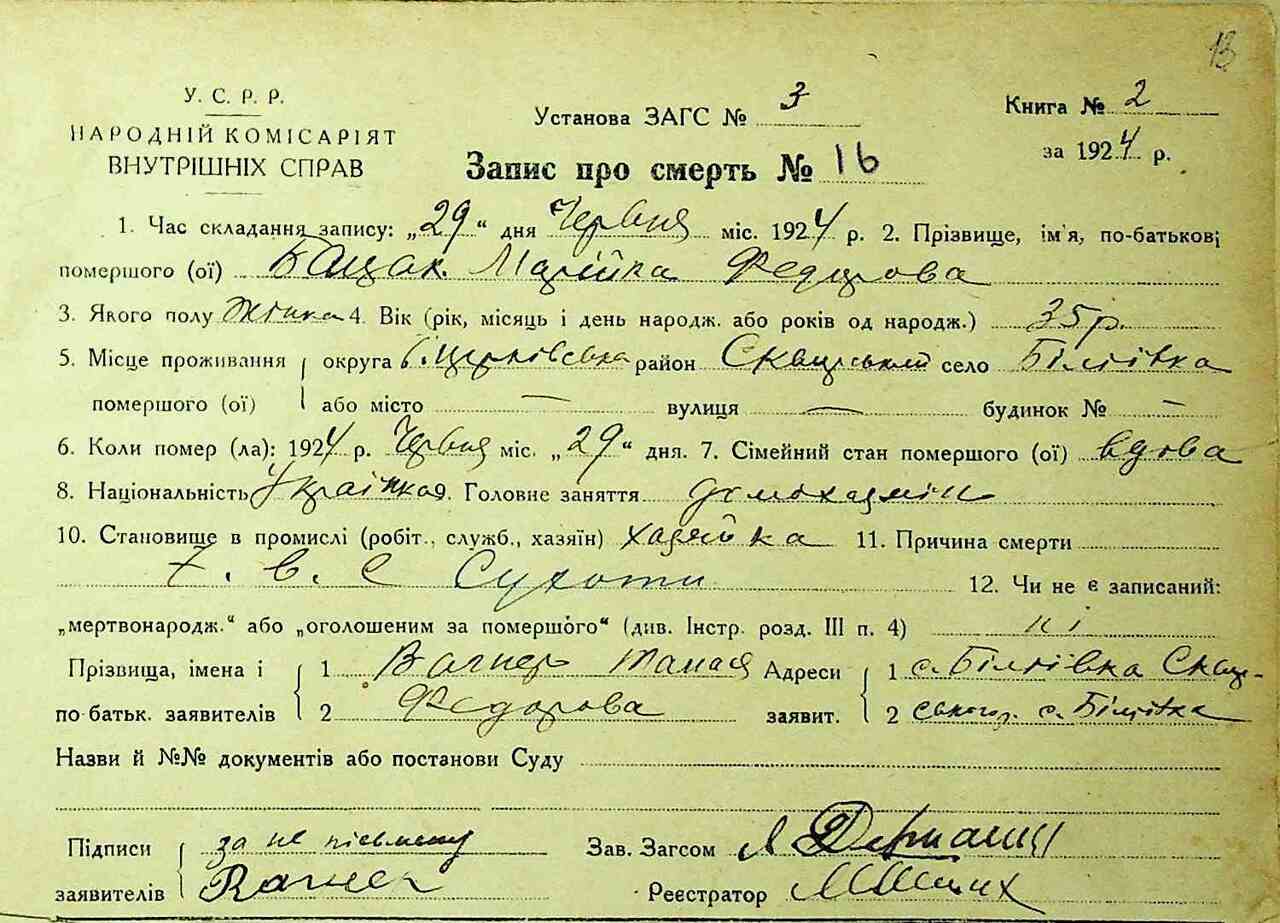 13
У. С. Р. Р.
НАРОДНІЙ КОМІСАРІЯТ
ВНУТРІШНІХ СПРАВ
Установа ЗАГС № 3
Книга № 2
за 1924 р.
Запис про смерть № 16
1. Час складання запису: „29“ дня Червня міс. 1924 р. 2. Прізвище, ім'я, по-батькові
помершого (ої) Бацак Марійка Федорова
3. Якого полу Жінка 4. Вік (рік, місяць і день народж. або років од народж.) 35 р.
5. Місце проживання округа Б. Церковська район Сквирський село Біліївка
помершого (ої) або місто — вулиця — будинок № —
6. Коли помер (ла): 1924 р. Червня міс. „29“ дня. 7. Сімейний стан помершого (ої) вдова
8. Національність Українка 9. Головне заняття
10. Становище в промислі (робіт., служб., хазяїн) хазяйка 11. Причина смерти
Т. в. с Сухоти 12. Чи не є записаний:
„мертвонародж.“ або „оголошеним за помершого“ (див. Інстр. розд. III п. 4) ні
Прізвища, імена і 1 Вагнер Адреси 1 с. Біліївка Сквир-
по-батьк. заявителів 2 Федорова заявит. 2 ського р. с. Біліївка
Назви й №№ документів або постанови Суду
Підписи за не письмену Зав. Загсом
заявителів Вагнер Реєстратор